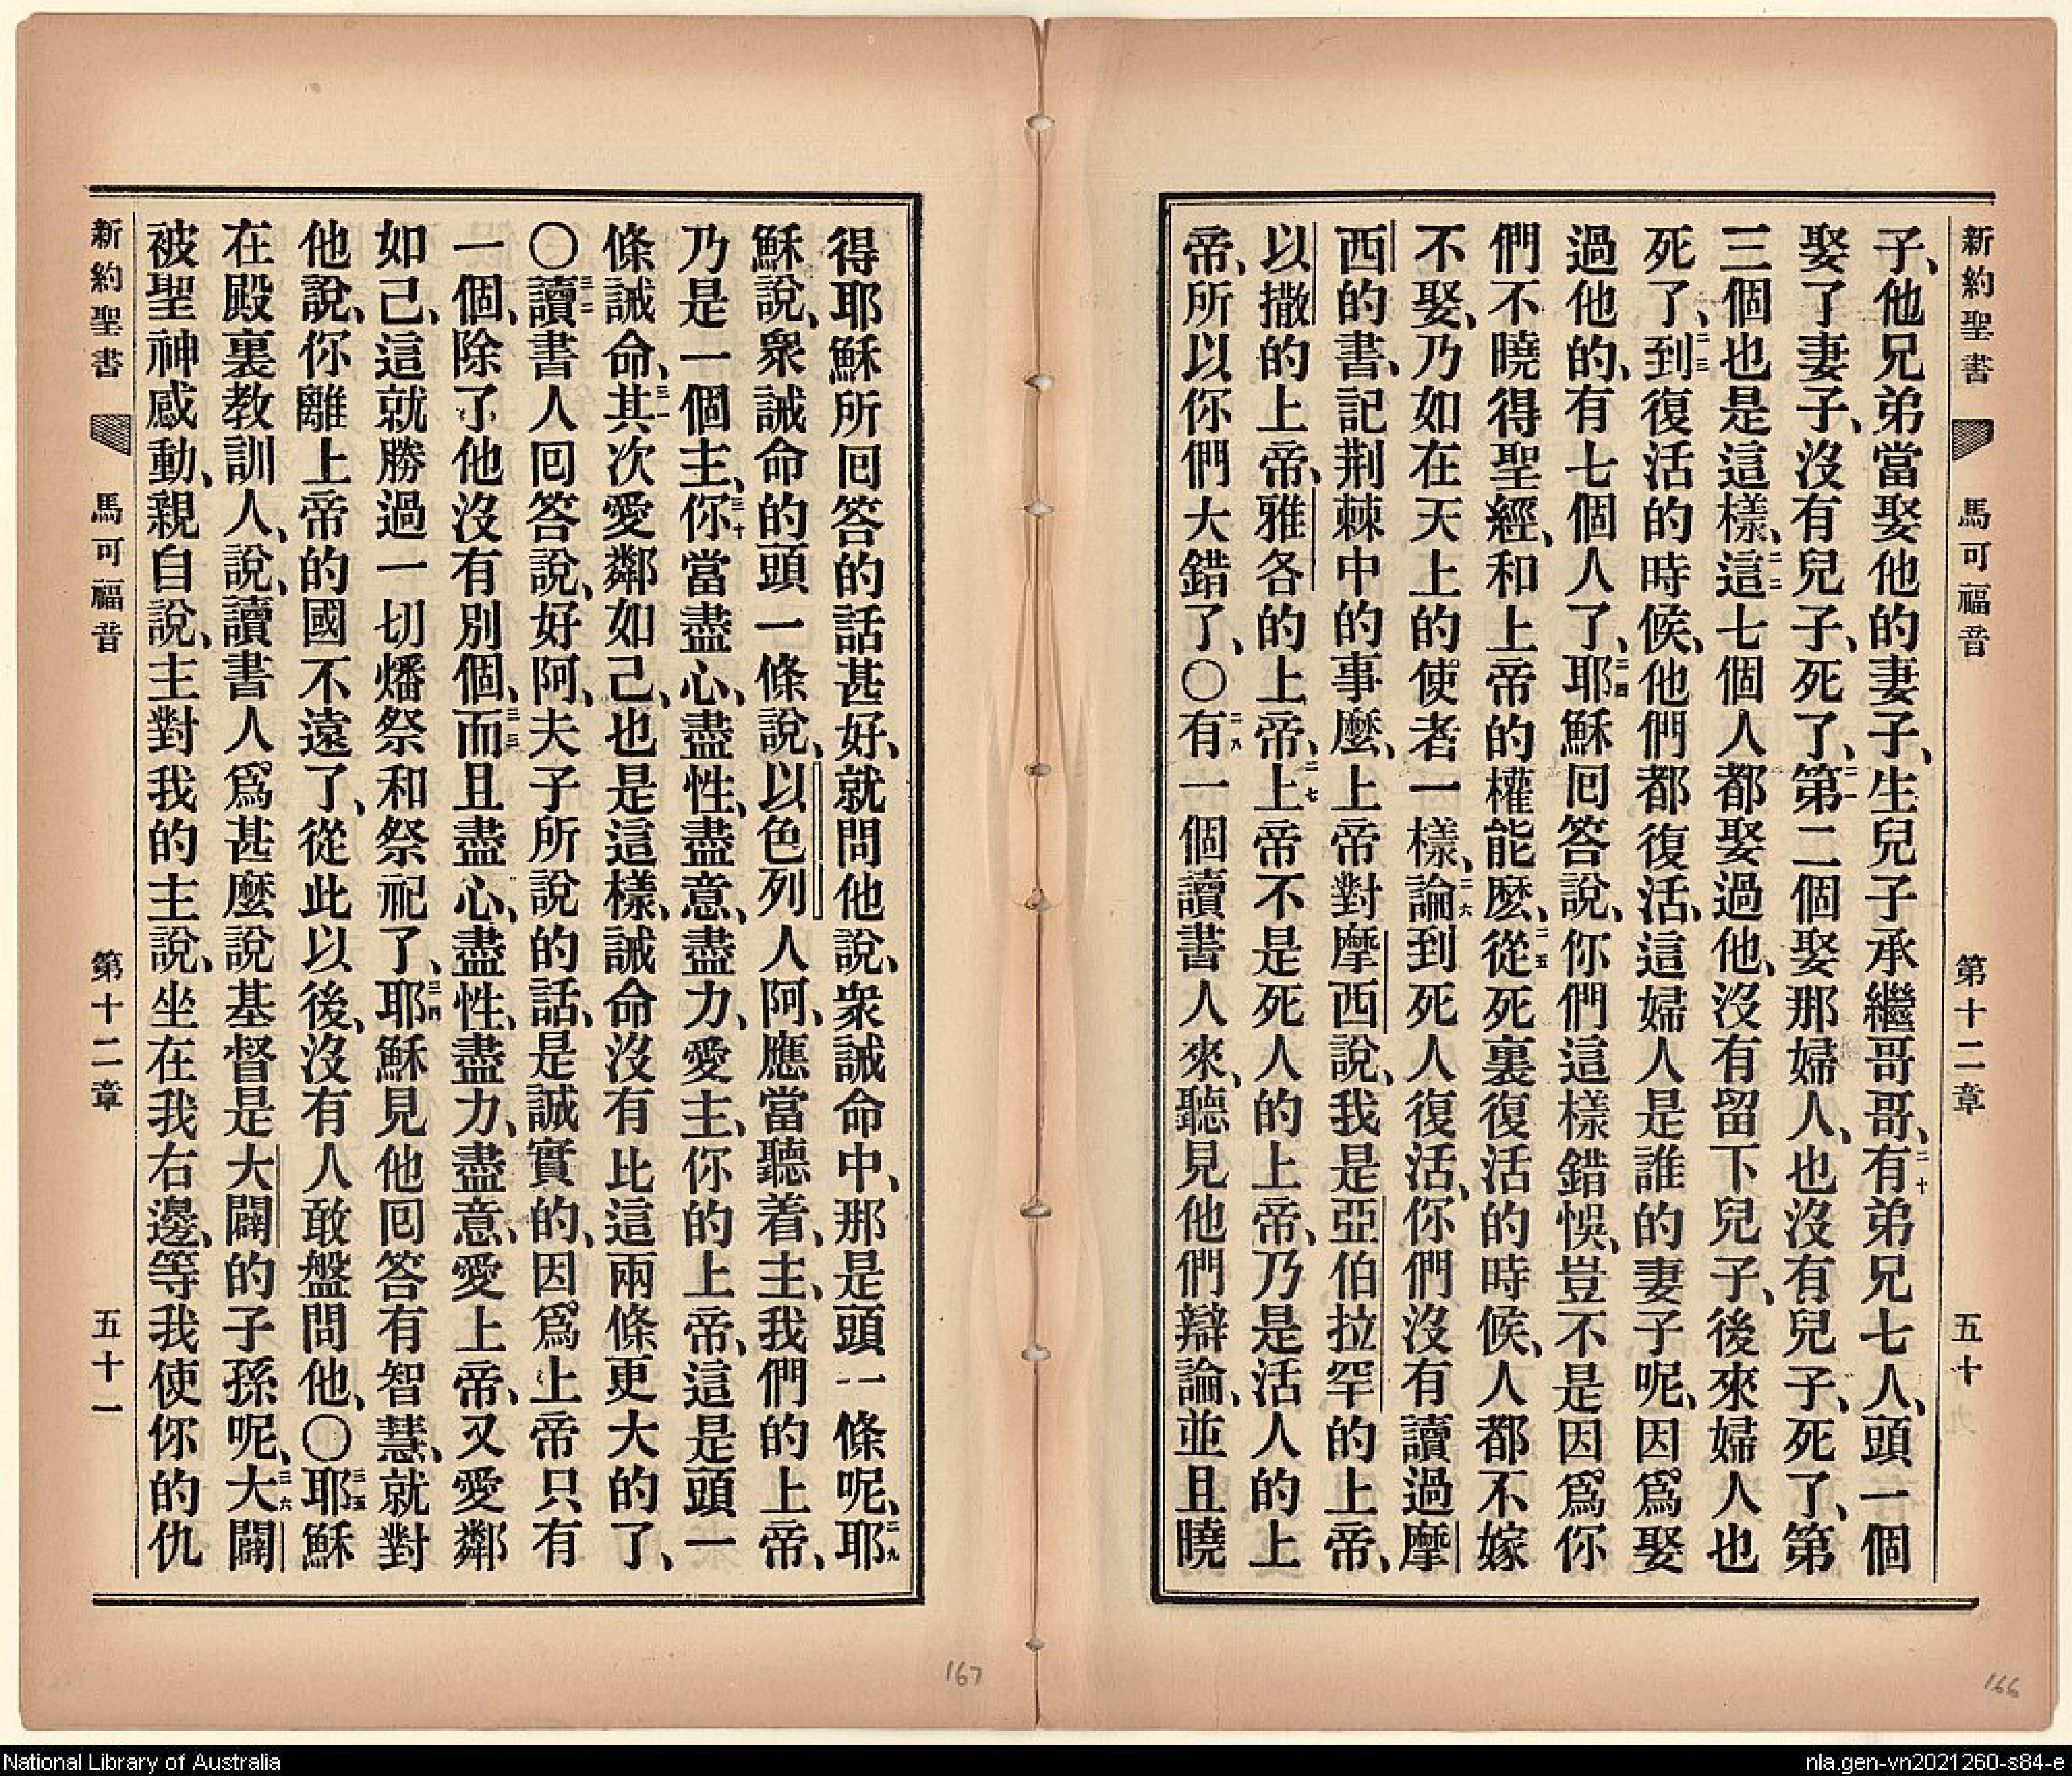 新約聖書 馬可福音 第十二章 五十
子、他兄弟當娶他的妻子、生兒子承繼哥哥、二十有弟兄七人、頭一個
娶了妻子、沒有兒子、死了、二一第二個娶那婦人、也沒有兒子、死了、第
三個也是這樣、二二這七個人都娶過他、沒有留下兒子、後來婦人也
死了、二三到復活的時候、他們都復活、這婦人是誰的妻子呢、因爲娶
過他的、有七個人了、二四耶穌囘答說、你們這樣錯悞、豈不是因爲你
們不曉得聖經、和上帝的權能麽、二五從死裏復活的時候、人都不嫁
不娶、乃如在天上的使者一樣、二六論到死人復活、你們沒有讀過摩
西的書、記荆棘中的事麽、上帝對摩西說、我是亞伯拉罕的上帝、
以撒的上帝、雅各的上帝、二七上帝不是死人的上帝、乃是活人的上
帝、所以你們大錯了、〇二八有一個讀書人來、聽見他們辯論、並且曉
得耶穌所囘答的話甚好、就問他說、衆誡命中、那是頭一條呢、二九耶
穌說、衆誡命的頭一條說、以色列人阿、應當聽着、主、我們的上帝、
乃是一個主、三十你當盡心、盡性、盡意、盡力、愛主、你的上帝、這是頭一
條誡命、三一其次愛鄰如己、也是這樣、誡命沒有比這兩條更大的了、
〇三二讀書人囘答說、好阿、夫子所說的話、是誠實的、因爲上帝只有
一個、除了他沒有別個、三三而且盡心、盡性、盡力、盡意、愛上帝、又愛鄰
如己、這就勝過一切燔祭和祭祀了、三四耶穌見他囘答有智慧、就對
他說、你離上帝的國不遠了、從此以後、沒有人敢盤問他、〇三五耶穌
在殿裏教訓人、說、讀書人爲甚麽說基督是大闢的子孫呢、三六大闢
被聖神感動、親自說、主對我的主說、坐在我右邊、等我使你的仇
新約聖書 馬可福音 第十二章 五十一
167
166
National Library of Australia
nla.gen-vn2021260-s84-e